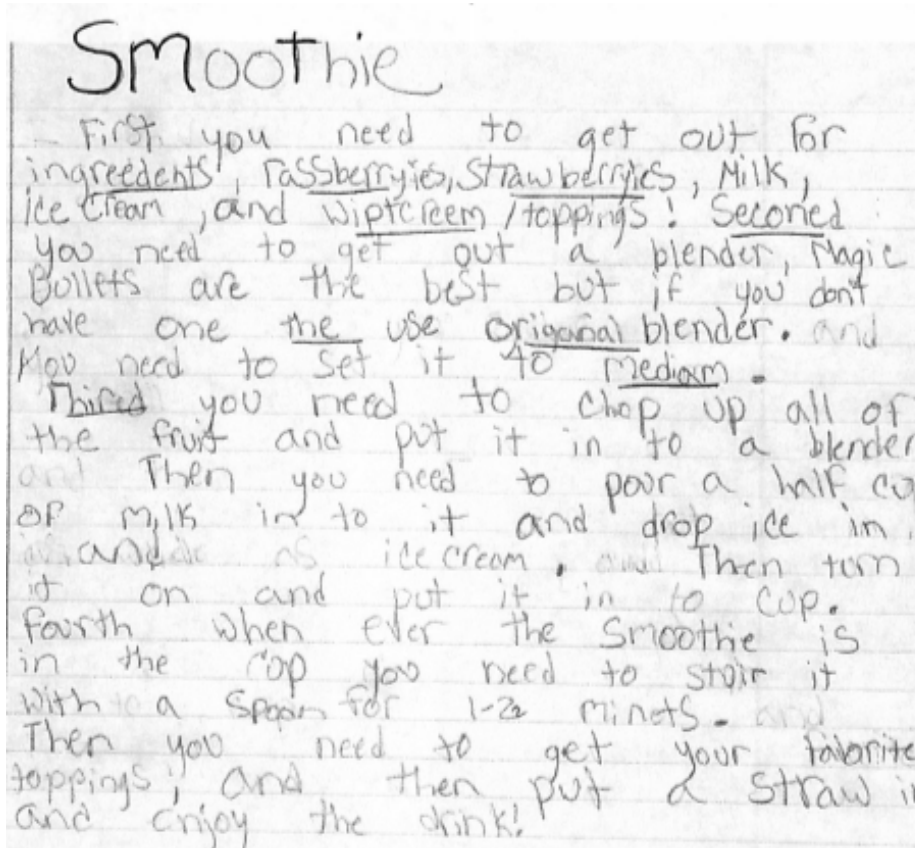 Smoothie
First you need to get out for
ingreedents, rassberryies, strawberryies, Milk,
ice cream, and wiptcreem / toppings! Seconed
you need to get out a blender, Magic
Bullets are the best but if you don't
have one the use origanal blender. and
you need to set it to medium.
Thired you need to chop up all of
the fruit and put it in to a blender
and Then you need to poar a half cu
of milk in to it and drop ice in,
and ice cream. and Then turn
it on and put it in to cup.
Fourth when ever the Smoothe is
in the cop you need to stair it
with a spoon for 1-2 minets. and
Then you need to get your favorite
toppings, and then put a straw in
and enjoy the drink!